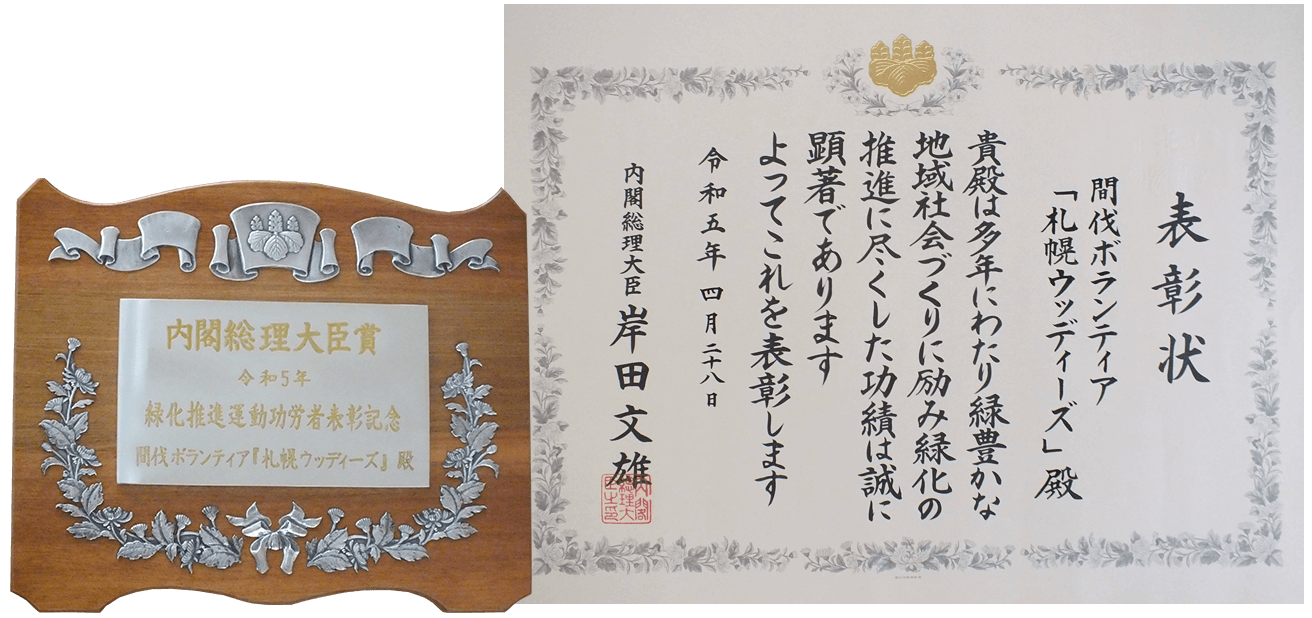 内閣総理大臣賞
令和5年
緑化推進運動功労者表彰記念
間伐ボランティア『札幌ウッディーズ』殿
表彰状
間伐ボランティア
「札幌ウッディーズ」殿
貴殿は多年にわたり緑豊かな
地域社会づくりに励み緑化の
推進に尽くした功績は誠に
顕著であります
よってこれを表彰します
令和五年四月二十八日
内閣総理大臣 岸田文雄
内閣
総理大
臣之印